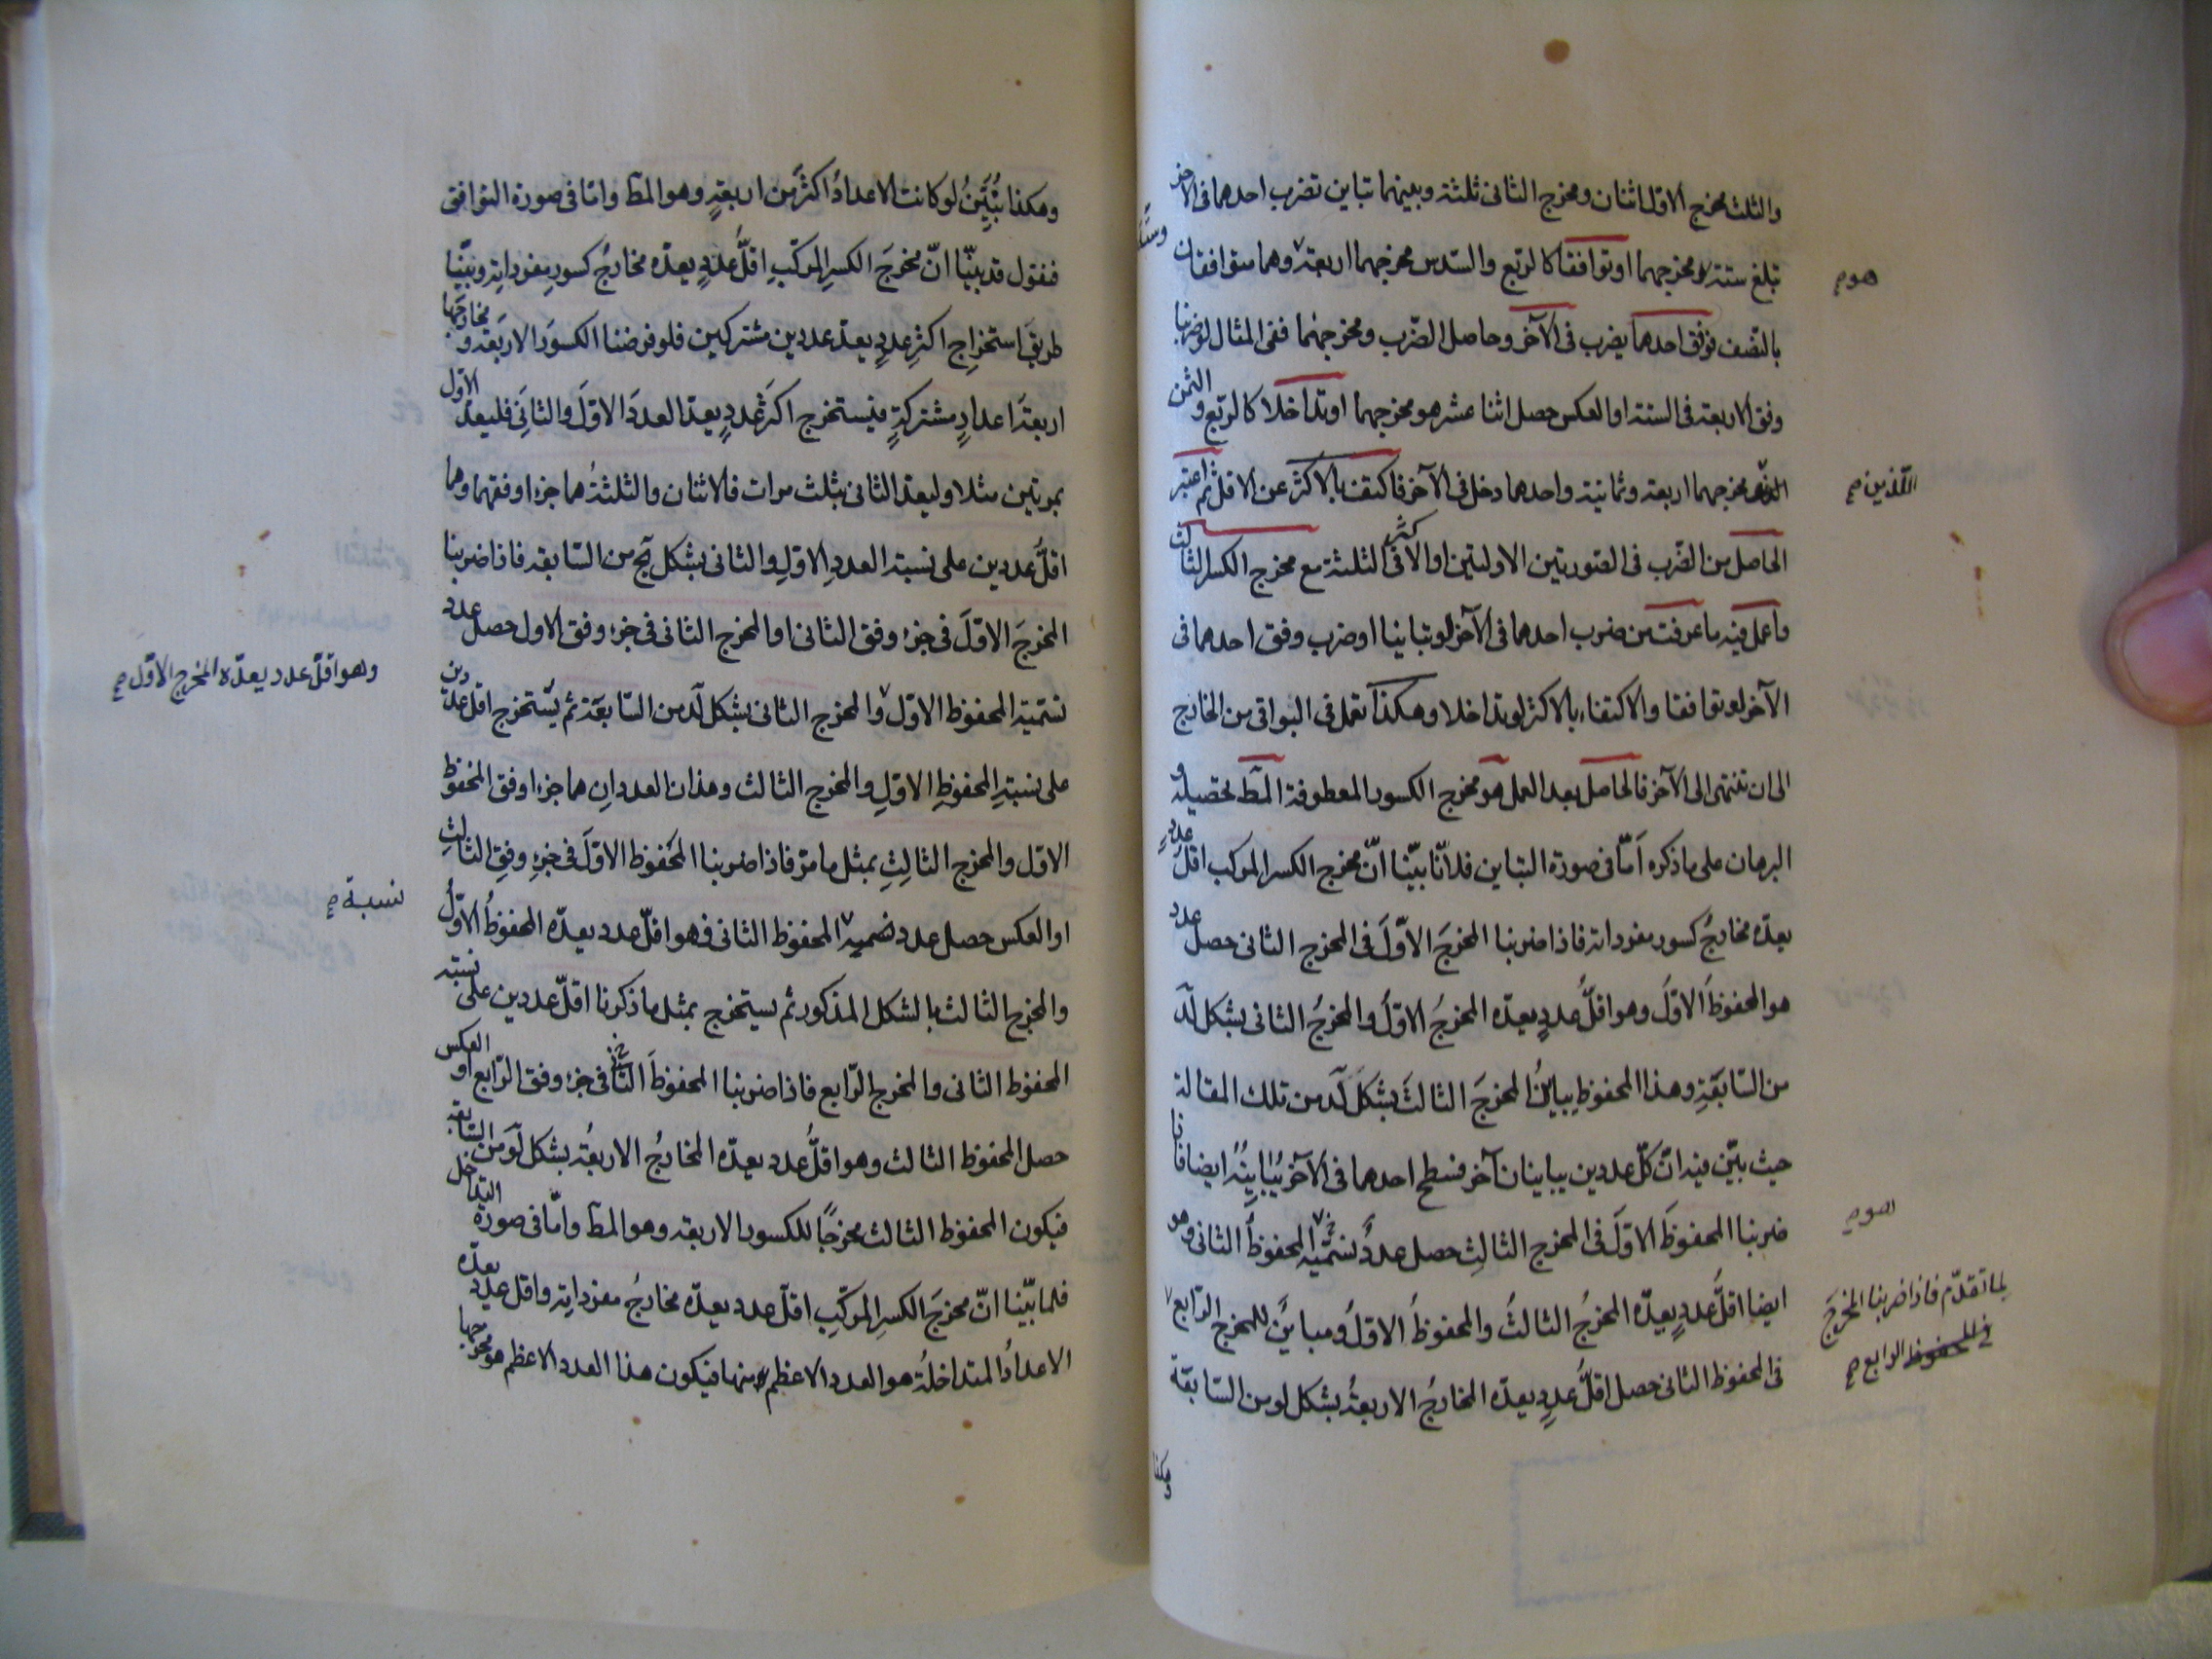 والثلث مخرج الاول اثنان ومخرج الثانى ثلثة وبينهما تباين تضرب احدهما فى الاخر
تبلغ ستة هو مخرجهما او توافقا كالربع والسدس مخرجهما اربعة وستة وهما متوافقان
بالنصف فوفق احدهما يضرب فى الآخر وحاصل الضرب ومخرجهما ففى المثال لو ضربنا
وفق الاربعة فى الستة او العكس حصل اثنا عشر هو مخرجهما او تداخلا كالربع والثمن
مخرجهما اربعة وثمانية واحدهما دخل فى الآخر فاكتف بالاكثر عن الاقل ثم اعتبر
الحاصل من الضرب فى الصورتين الاولتين او الاكثر فى الثلثة مع مخرج الكسر الثالث
واعمل فيه ما عرفت من ضرب احدهما فى الآخر لو تباينا او ضرب وفق احدهما فى
الآخر لو توافقا والاكتفاء بالاكثر لو تداخلا وهكذا تعمل فى البواقى من المخارج
الى ان تنتهى الى الآخر فالحاصل بعد العمل هو مخرج الكسور المعطوفة المط تحصيله و
البرهان على ما ذكره اَمّا فى صورة التباين فلانّا بيّنا انّ مخرج الكسر المركب اقلّ عددٍ
يعدّه مخارجُ كسور مفرداته فاذا ضربنا المخرجَ الاوّلَ فى المخرج الثانى حصل عدد
هو المحفوظُ الاولُ وهو اقلُّ عددٍ يعدّه المخرجُ الاولُ والمخرجُ الثانى بشكل لد
من السابعةِ وهذا المحفوظ يباينُ المخرجَ الثالثَ بشكل كد من تلك المقالة
حيث بيّن فيه انّ كلّ عددين يباينان آخر فسطح احدهما فى الآخر يُباينُه ايضا فاذا
ضربنا المحفوظَ الاولَ فى المخرج الثالثِ حصل عددٌ نسميه المحفوظَ الثانى وهو
ايضا اقلُّ عددٍ يعدّه المخرجُ الثالثُ والمحفوظُ الاولُ ومباينٌ للمخرج الرابع
فى المحفوظ الثانى حصل اقلُّ عددٍ يعدّه المخارجُ الاربعةُ بشكل لو من السابعة
وهكذا
هو صح
اللذين صح
هو صح
لما تقدّم فاذا ضربنا المخرجَ
الرابع صح
وهكذا يُبَيَّنُ لو كانت الاعدادُ اكثرَ من اربعةٍ وهو المط وامّا فى صورة التوافق
فنقول قد بيّنّا انّ مخرجَ الكسرِ المركّبِ اقلُّ عددٍ يعدّه مخارجُ كسورِ مفرداتِه وبيّنا
طريقَ استخراجِ اكثرِ عددٍ يعدّ عددين مشتركين فلو فرضنا الكسورَ الاربعَة ومخارجَها
اربعةَ اعدادٍ مشتركةٍ فيستخرج اكثرَ عددٍ يعدّ العددَ الاولَ والثانِىَ فليعدّ الاول
بمرتين مثلا وليعد الثانى بثلث مرات فالاثنان والثلثةُ هما جزءا وفقهما وهما
اقلُّ عددين على نسبة العددِ الاولِ والثانى بشكل لج من السّابعة فاذا ضربنا
المخرجَ الاوّلَ فى جزء وفق الثانى او المخرج الثانى فى جزء وفق الاول حصل عدد
نسمّيه المحفوظ الاوّل والمخرج الثانى بشكل لد من السّابعَة ثم يُستخرج اقلّ عددين
على نسبةِ المحفوظِ الاوّلِ والمخرج الثالث وهذان العددانِ هما جزءا وفق المحفوظ
الاول والمخرج الثالثِ بمثل ما مرّ فاذا ضربنا المحفوظ الاوّلَ فى جزءِ وفقِ الثالثِ
او العكس حصل عدد نسميه المحفوظ الثانى فهو اقلّ عدد يعدّه المحفوظُ الاوّلُ
والمخرج الثالث بالشكل المذكور ثم يستخرج بمثل ما ذكرنا اقلّ عددين على نسبة
المحفوظ الثانى والمخرج الرّابع فاذا ضربنا المحفوظَ الثانى فى جزء وفق الرّابع او العكس
حصل المحفوظ الثالث وهو اقلُّ عدد يعدّه المخارجُ الاربعُة بشكل لو من السّابعة
فيكون المحفوظ الثالث مخرجًا للكسور الاربعة وهو المط وامّا فى صورة التداخل
فلما بيّنا انّ مخرجَ الكسرِ المركّبِ اقلّ عدد يعدّه مخارجُ مفرداتِه واقل عدد يعدّه
الاعدادُ المتداخلةُ هو العدد الاعظم منها فيكون هذا العدد الاعظم هو مخرجها
وهو اقلّ عدد يعدّه المخرج الاوّل صح
نسبة صح